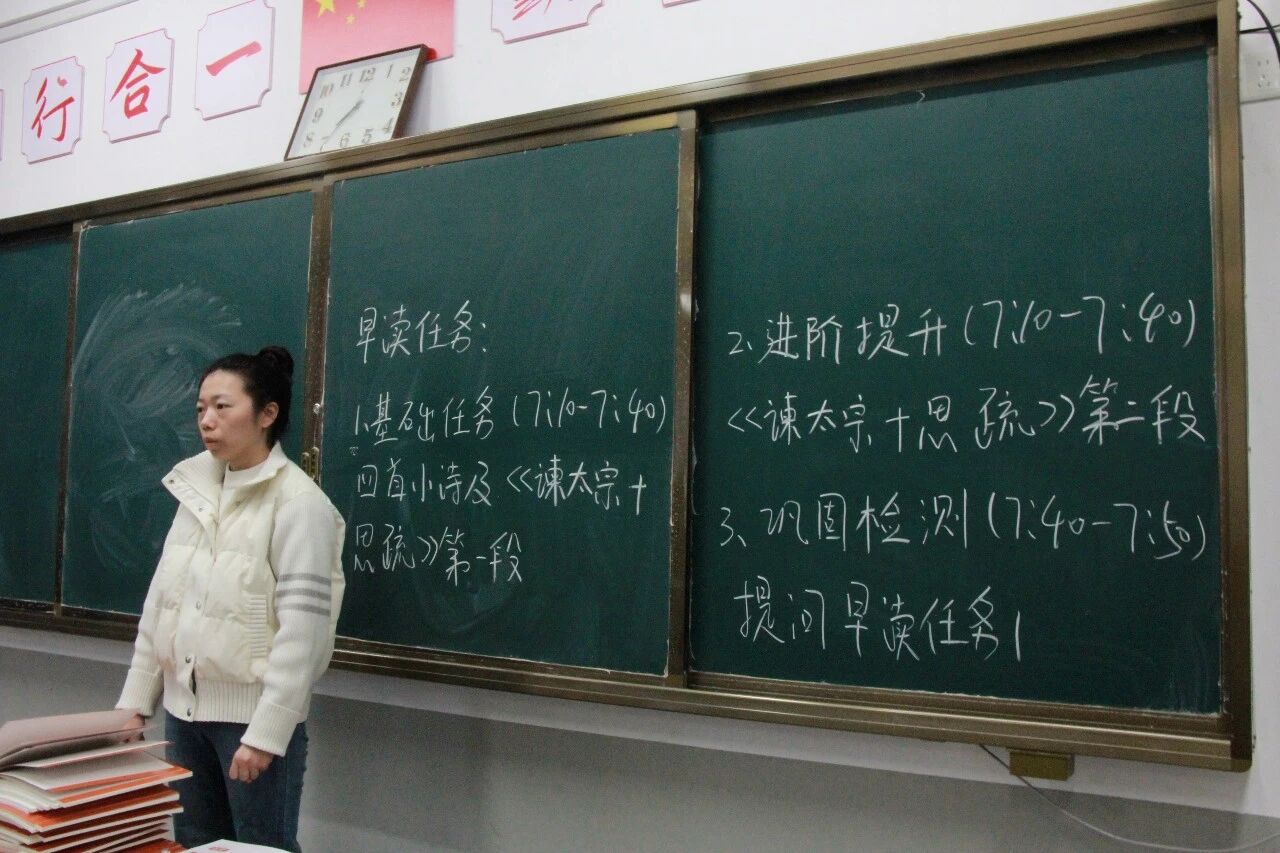 行合一
10 11 12 1 2 3 4 5 6 7 8 9
早读任务：
1、基础任务（7:10-7:40）
四首小诗及《谏太宗十
思疏》第一段
2、进阶提升（7:10-7:40）
《谏太宗十思疏》第二段
3、巩固检测（7:40-7:50）
提问早读任务1